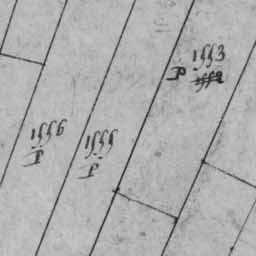 1553
P
1556
P
1555
P